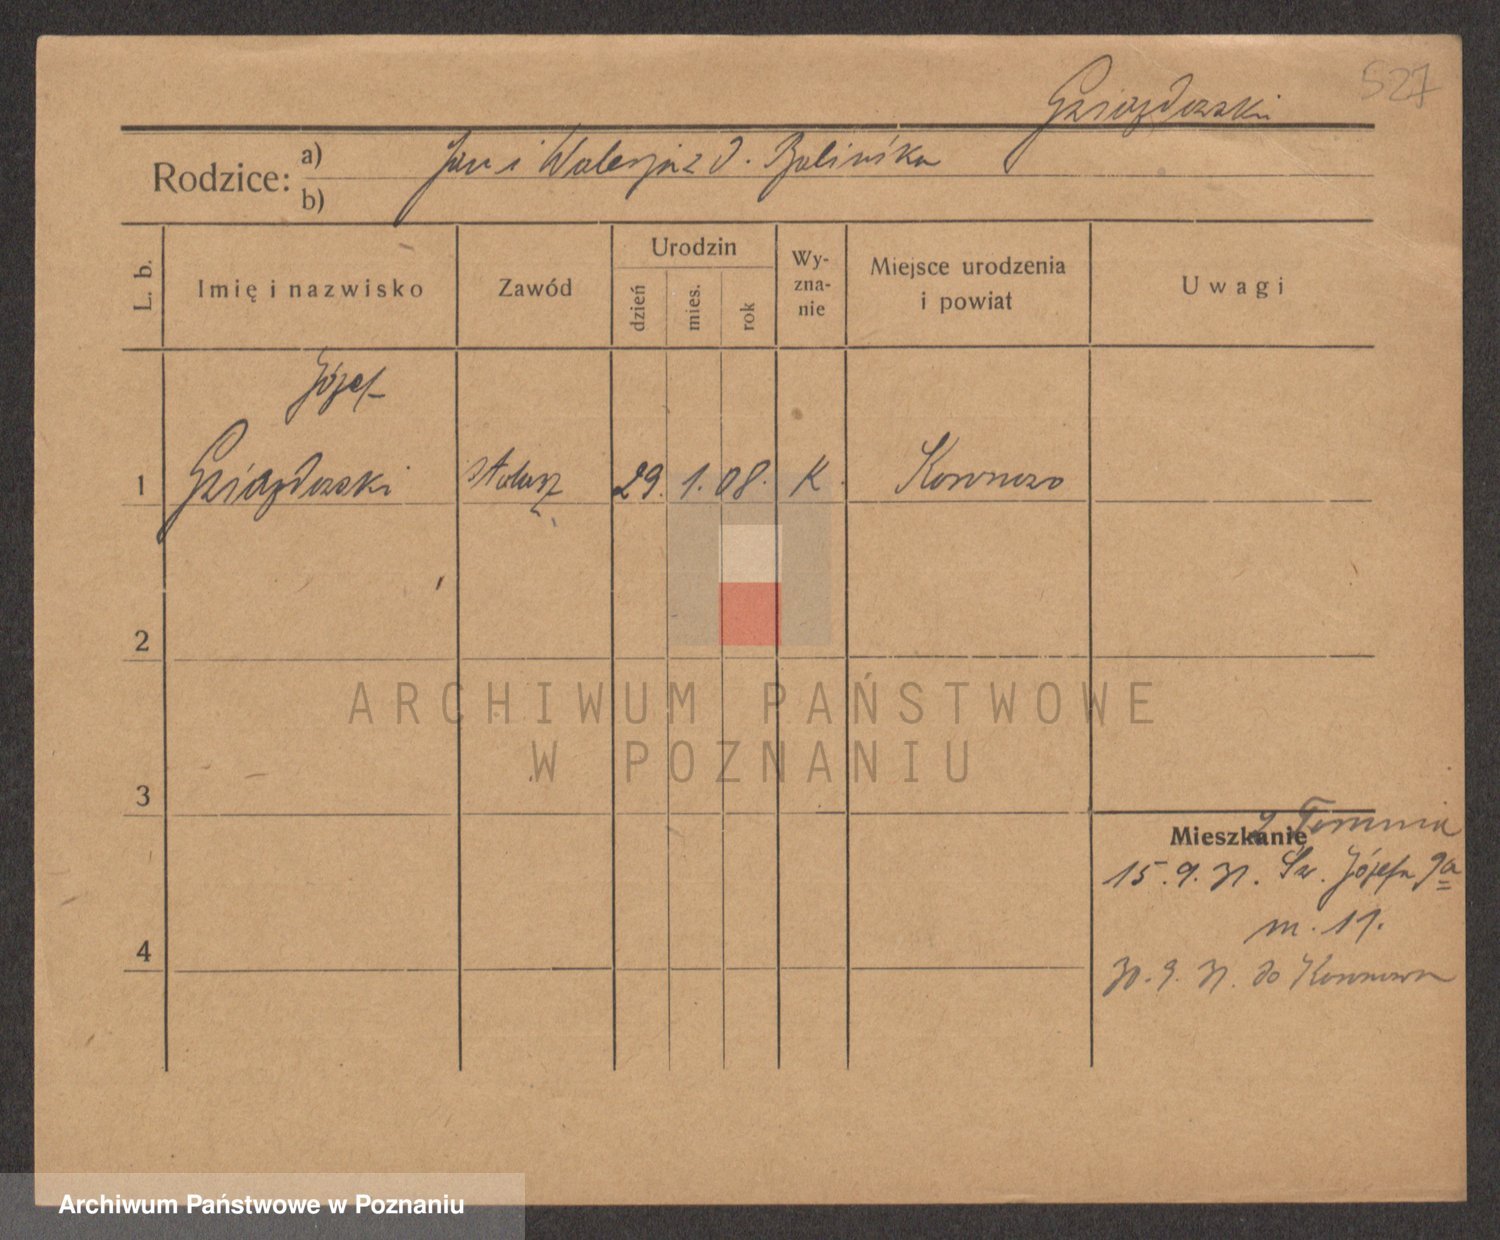 527
Gwiazdowski
Rodzice: a) Jan i Walerja z d. Balińska
b)
L. b.
Imię i nazwisko
Zawód
Urodzin
dzień
mies.
rok
Wy-
zna-
nie
Miejsce urodzenia
i powiat
Uwagi
Józef
1 Gwiazdowski stolarz 29. 1. 08. K. Koronowo
2
3
4
z Torunia
Mieszkanie
15.9.31. Św. Józefa 9a
m. 11.
30.9.31. do Koronowa
ARCHIWUM PAŃSTWOWE
W POZNANIU
Archiwum Państwowe w Poznaniu